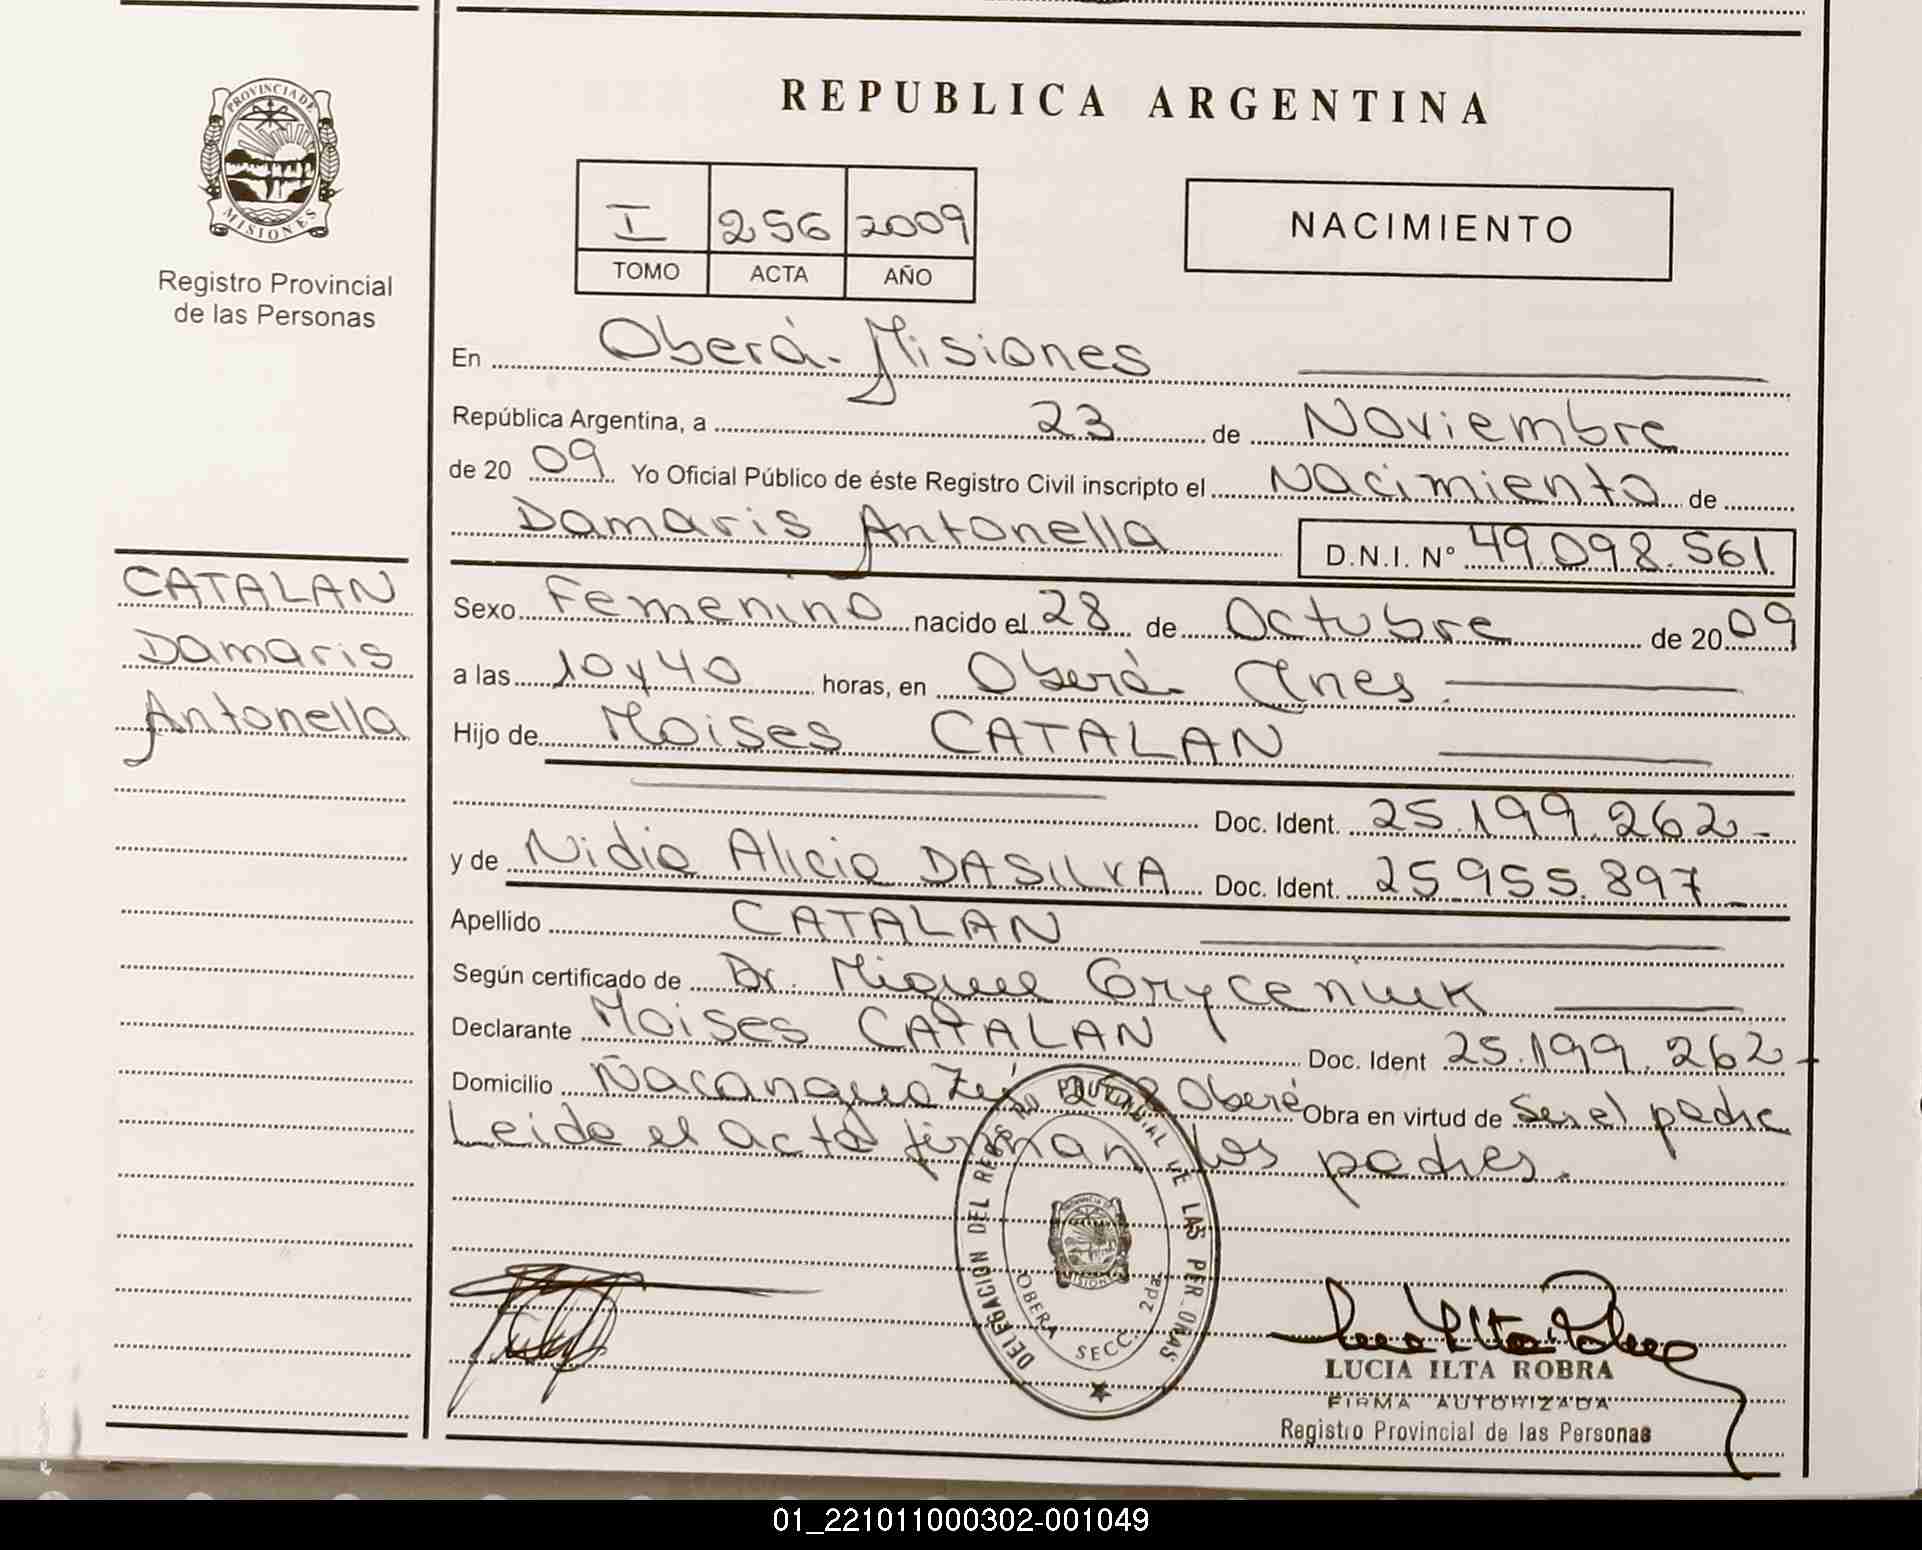 REPUBLICA ARGENTINA
PROVINCIA DE MISIONES
Registro Provincial
de las Personas
I 256 2009
TOMO ACTA AÑO
NACIMIENTO
En Oberá - Misiones
República Argentina, a 23 de Noviembre
de 20 09 Yo Oficial Público de éste Registro Civil inscripto el Nacimiento de
Damaris Antonella D.N.I. Nº 49.098.561
CATALAN
Damaris
Antonella
Sexo Femenino nacido el 28 de Octubre de 20 09
a las 10 y 40 horas, en Oberá
Hijo de Moises CATALAN
Doc. Ident. 25.199.262-
y de Nidia Alicia DASILVA Doc. Ident. 25.955.897-
Apellido CATALAN
Según certificado de Dr. Miguel
Declarante Moises CATALAN Doc. Ident 25.199.262-
Domicilio Ñacanguazú Oberá Obra en virtud de Ser el padre
Leida el acta firman los padres.
DELEGACION DEL REGISTRO PROVINCIAL DE LAS PERSONAS
PROVINCIA DE MISIONES
OBERA SECC. 2da.
LUCIA ILTA ROBRA
FIRMA AUTORIZADA
Registro Provincial de las Personas
01_221011000302-001049